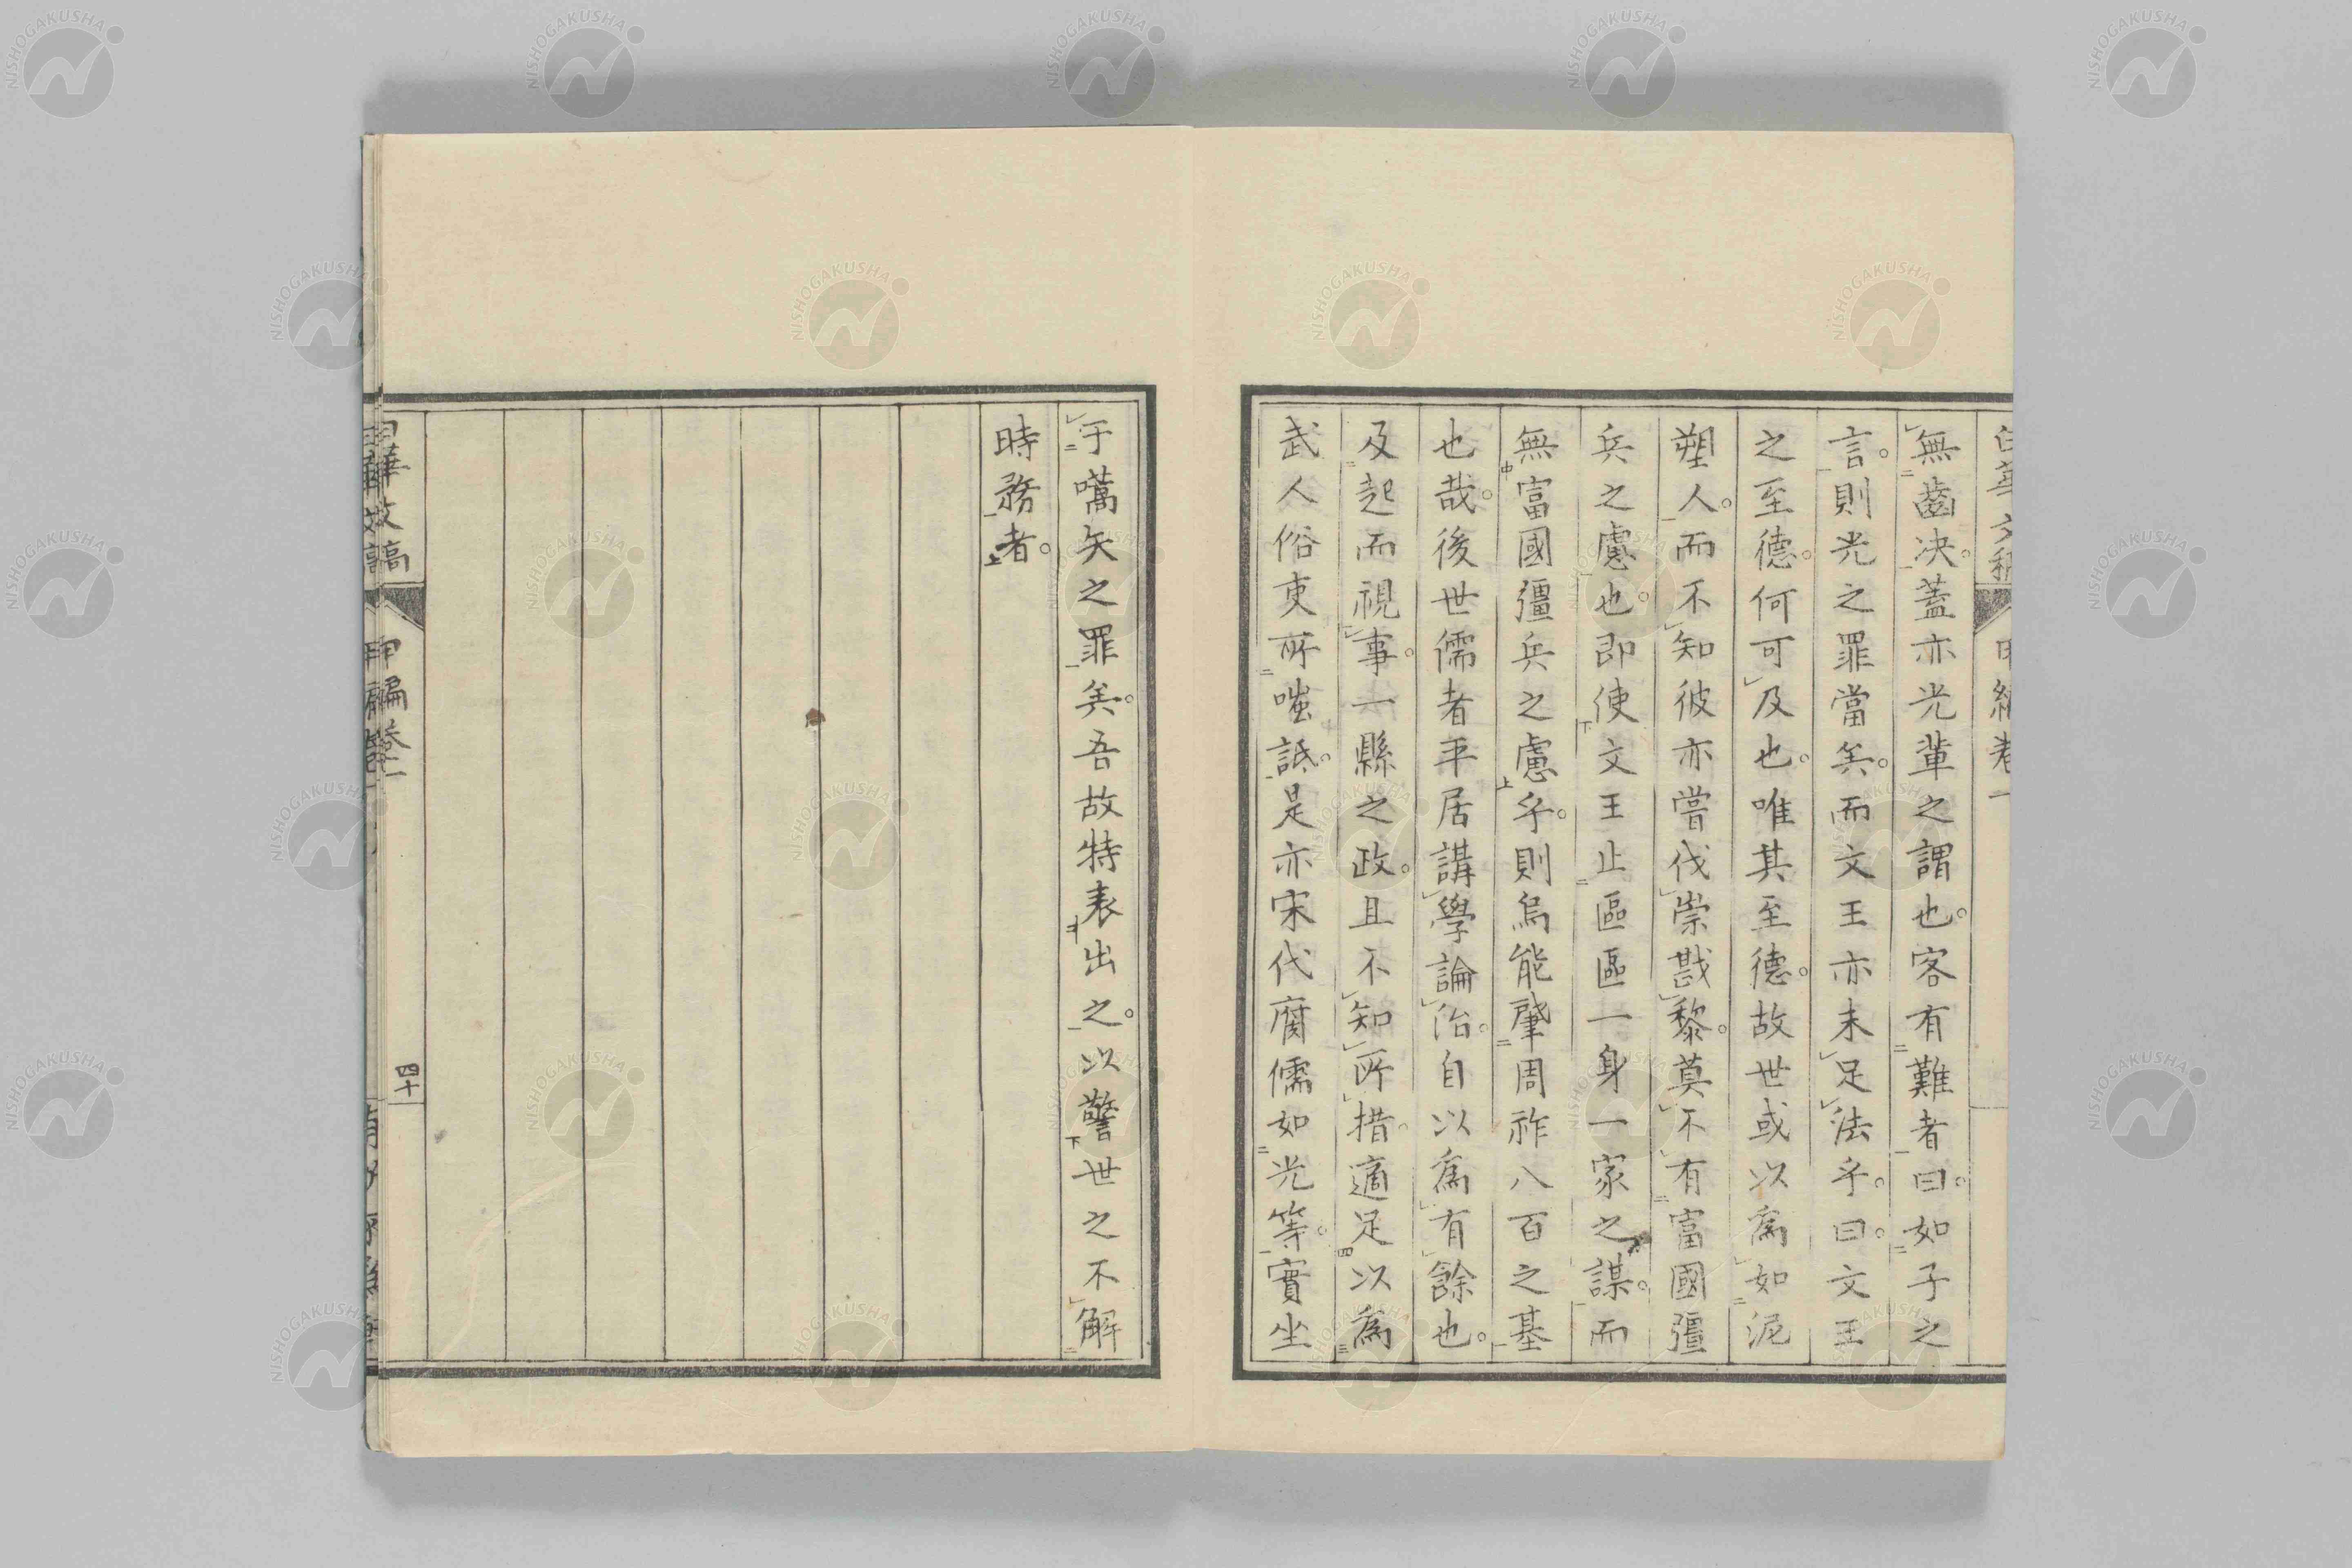 無齒决。蓋亦光輩之謂也。客有難者曰。如子之
言。則光之罪當矣。而文王亦未足法乎。曰。文王
之至德。何可及也。唯其至德。故世或以爲如泥
塑人。而不知彼亦嘗伐崇戡黎。莫不有富國彊
兵之慮也。即使文王止區區一身一家之謀。而
無富國彊兵之慮乎。則烏能肇周祚八百之基
也哉。後世儒者平居講學論治。自以爲有餘也。
及起而視事。一縣之政。且不知所措。適足以爲
武人俗吏所嗤詆。是亦宋代腐儒如光等。實坐
于嚆矢之罪矣。吾故特表出之。以警世之不解
時務者。
四十
NISHOGAKUSHA